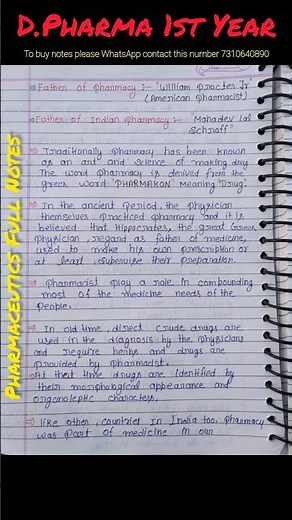 D.Pharma 1st Year
To buy notes please WhatsApp contact this number 7310640890
Pharmaceutics Full Notes
⇒ Father of pharmacy :- "William Procter Jr"
(American pharmacist)
⇒ Father of Indian pharmacy :- "Mahadev lal
Schroff"
⇒ Traditionally pharmacy has been known
as an art and science of making drug
The word pharmacy is derived from the
greek word "PHARMAKON" meaning "Drug".
⇒ In the ancient period, the physician
themselves practiced pharmacy and it is
believed that Hippocrates, the great Greek
physician, regard as father of medicine,
used to make his own prescription or
at least supervise their preparation.
⇒ pharmacist play a role in compounding
most of the medicine needs of the
people.
⇒ In old time, direct crude drugs are
used in the diagnosis by the physicians
and require herbs and drugs are
provided by pharmacist.
At that time drugs are identified by
their morphological appearance and
organoleptic characters.
⇒ like other, countries in India too, pharmacy
was part of medicine in our